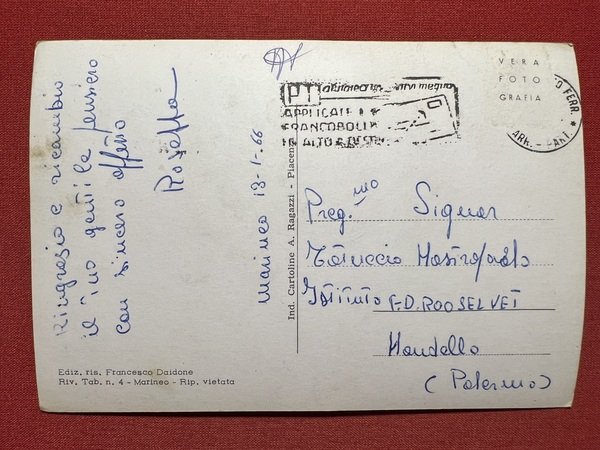 Ringrazio e ricambio
il tuo gentile pensiero
con sincero affetto
Rosetta
Marineo 13-1-66
Ediz. ris. Francesco Daidone
Riv. Tab. n. 4 - Marineo - Rip. vietata
Ind. Cartoline A. Ragazzi - Piacenza
PT
APPLICATE I
FRANCOBOLLI
IN ALTO A DESTRA
VERA
FOTO
GRAFIA
FERR.
ARR. - PART.
Preg.mo Signor
Totuccio Mastropaolo
Istituto F.D. ROOSELVET
Mondello
(Palermo)